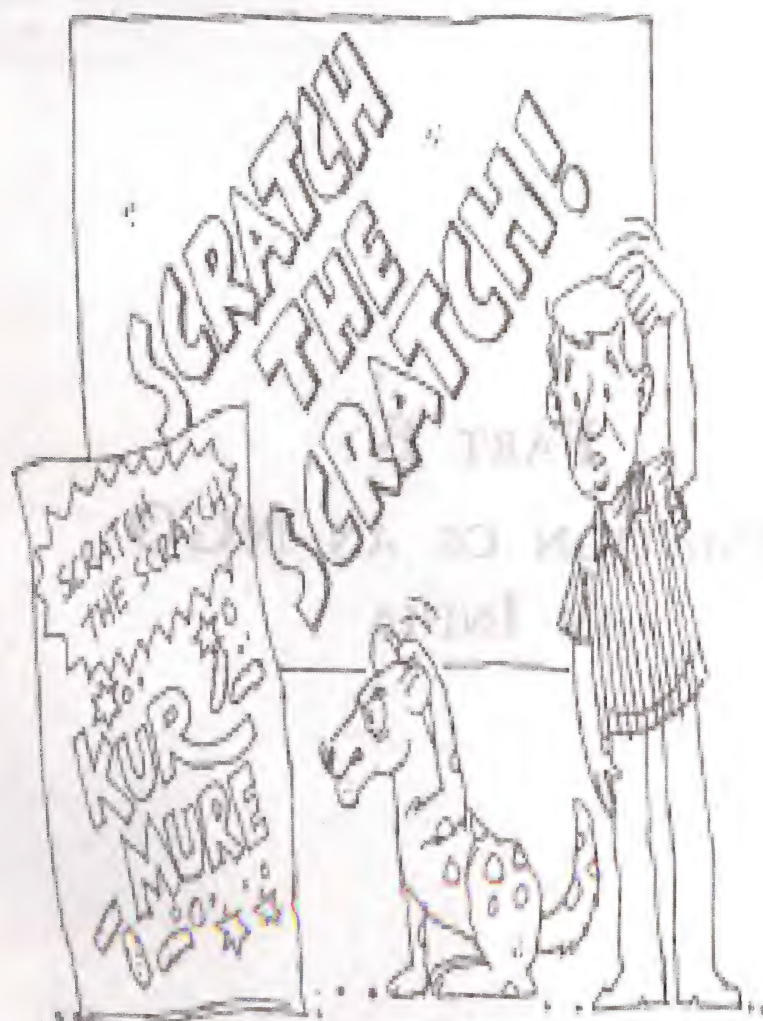 SCRATCH
THE
SCRATCH!
SCRATCH
THE SCRATCH
KUR
MURE
INDIA